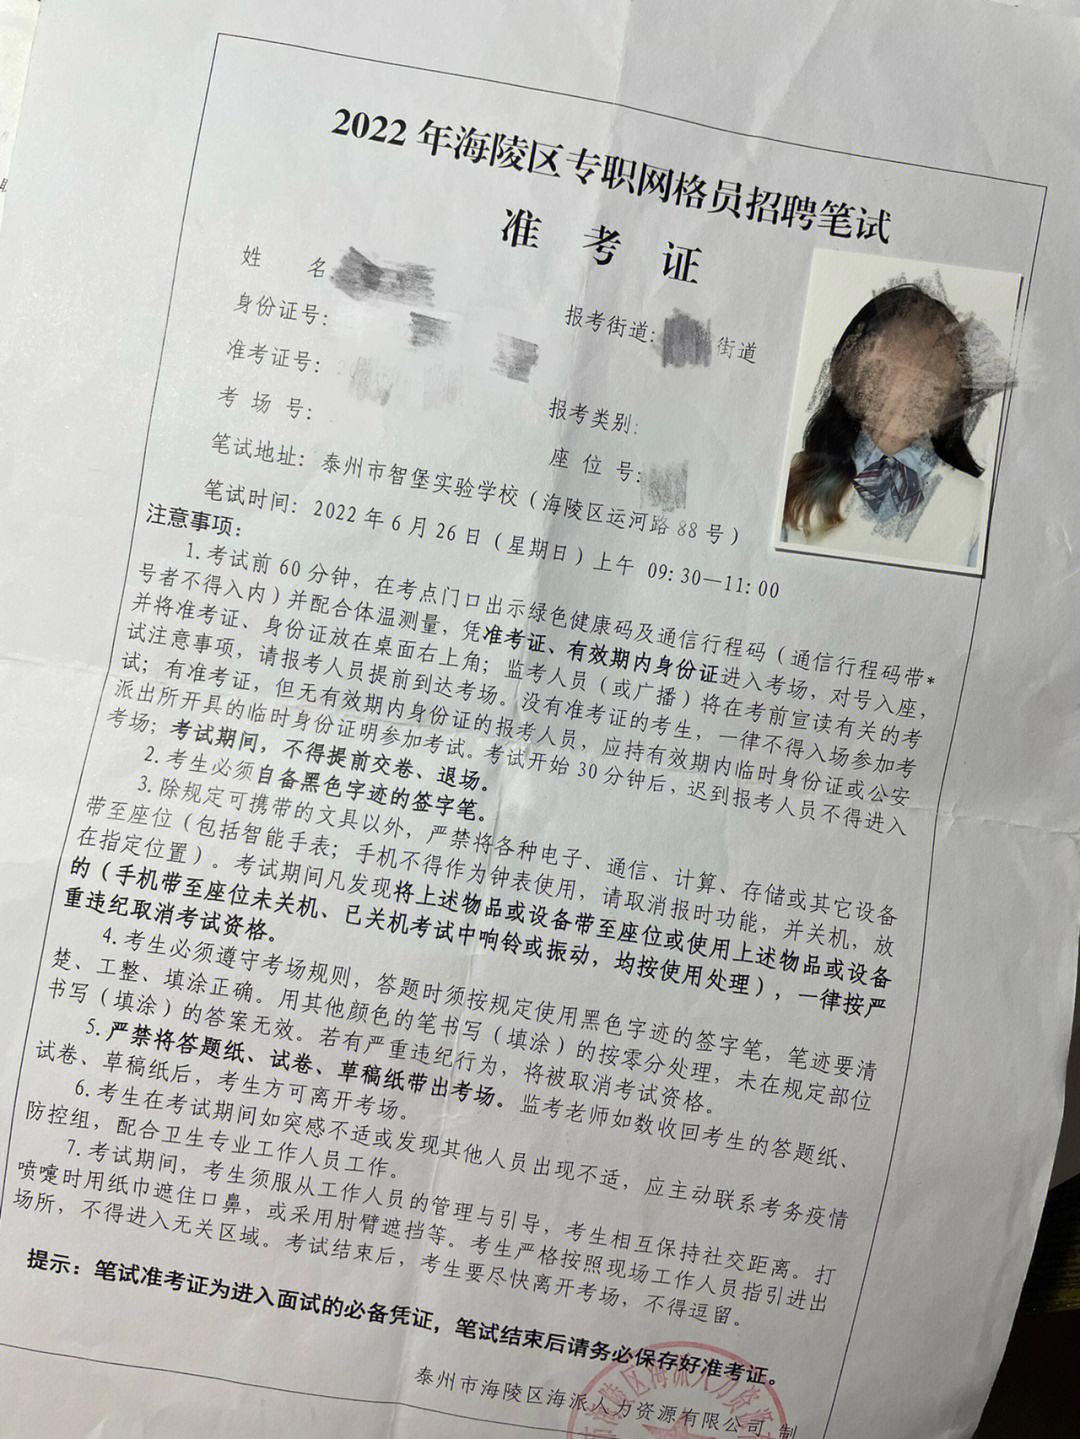 2022 年海陵区专职网格员招聘笔试
准 考 证
姓 名
报考街道: 街道
身份证号:
准考证号:
报考类别:
考 场 号:
座 位 号:
笔试地址: 泰州市智堡实验学校 (海陵区运河路 88 号)
笔试时间: 2022 年 6 月 26 日 (星期日) 上午 09:30—11:00
注意事项:
1. 考试前 60 分钟, 在考点门口出示绿色健康码及通信行程码 (通信行程码带*
号者不得入内) 并配合体温测量, 凭准考证、有效期内身份证进入考场, 对号入座,
并将准考证、身份证放在桌面右上角; 监考人员 (或广播) 将在考前宣读有关的考
试注意事项, 请报考人员提前到达考场。没有准考证的考生, 一律不得入场参加考
试; 有准考证, 但无有效期内身份证的报考人员, 应持有效期内临时身份证或公安
派出所开具的临时身份证明参加考试。考试开始 30 分钟后, 迟到报考人员不得进入
考场; 考试期间, 不得提前交卷、退场。
2. 考生必须自备黑色字迹的签字笔。
3. 除规定可携带的文具以外, 严禁将各种电子、通信、计算、存储或其它设备
带至座位 (包括智能手表; 手机不得作为钟表使用, 请取消报时功能, 并关机, 放
在指定位置)。考试期间凡发现将上述物品或设备带至座位或使用上述物品或设备
的 (手机带至座位未关机、已关机考试中响铃或振动, 均按使用处理), 一律按严
重违纪取消考试资格。
4. 考生必须遵守考场规则, 答题时须按规定使用黑色字迹的签字笔, 笔迹要清
楚、工整、填涂正确。用其他颜色的笔书写 (填涂) 的按零分处理, 未在规定部位
书写 (填涂) 的答案无效。若有严重违纪行为, 将被取消考试资格。
5. 严禁将答题纸、试卷、草稿纸带出考场。监考老师如数收回考生的答题纸、
试卷、草稿纸后, 考生方可离开考场。
6. 考生在考试期间如突感不适或发现其他人员出现不适, 应主动联系考务疫情
防控组, 配合卫生专业工作人员工作。
7. 考试期间, 考生须服从工作人员的管理与引导, 考生相互保持社交距离。打
喷嚏时用纸巾遮住口鼻, 或采用肘臂遮挡等。考生严格按照现场工作人员指引进出
场所, 不得进入无关区域。考试结束后, 考生要尽快离开考场, 不得逗留。
提示: 笔试准考证为进入面试的必备凭证, 笔试结束后请务必保存好准考证。
泰州市海陵区海派人力资源有限公司 制
市海陵区海派人力资源